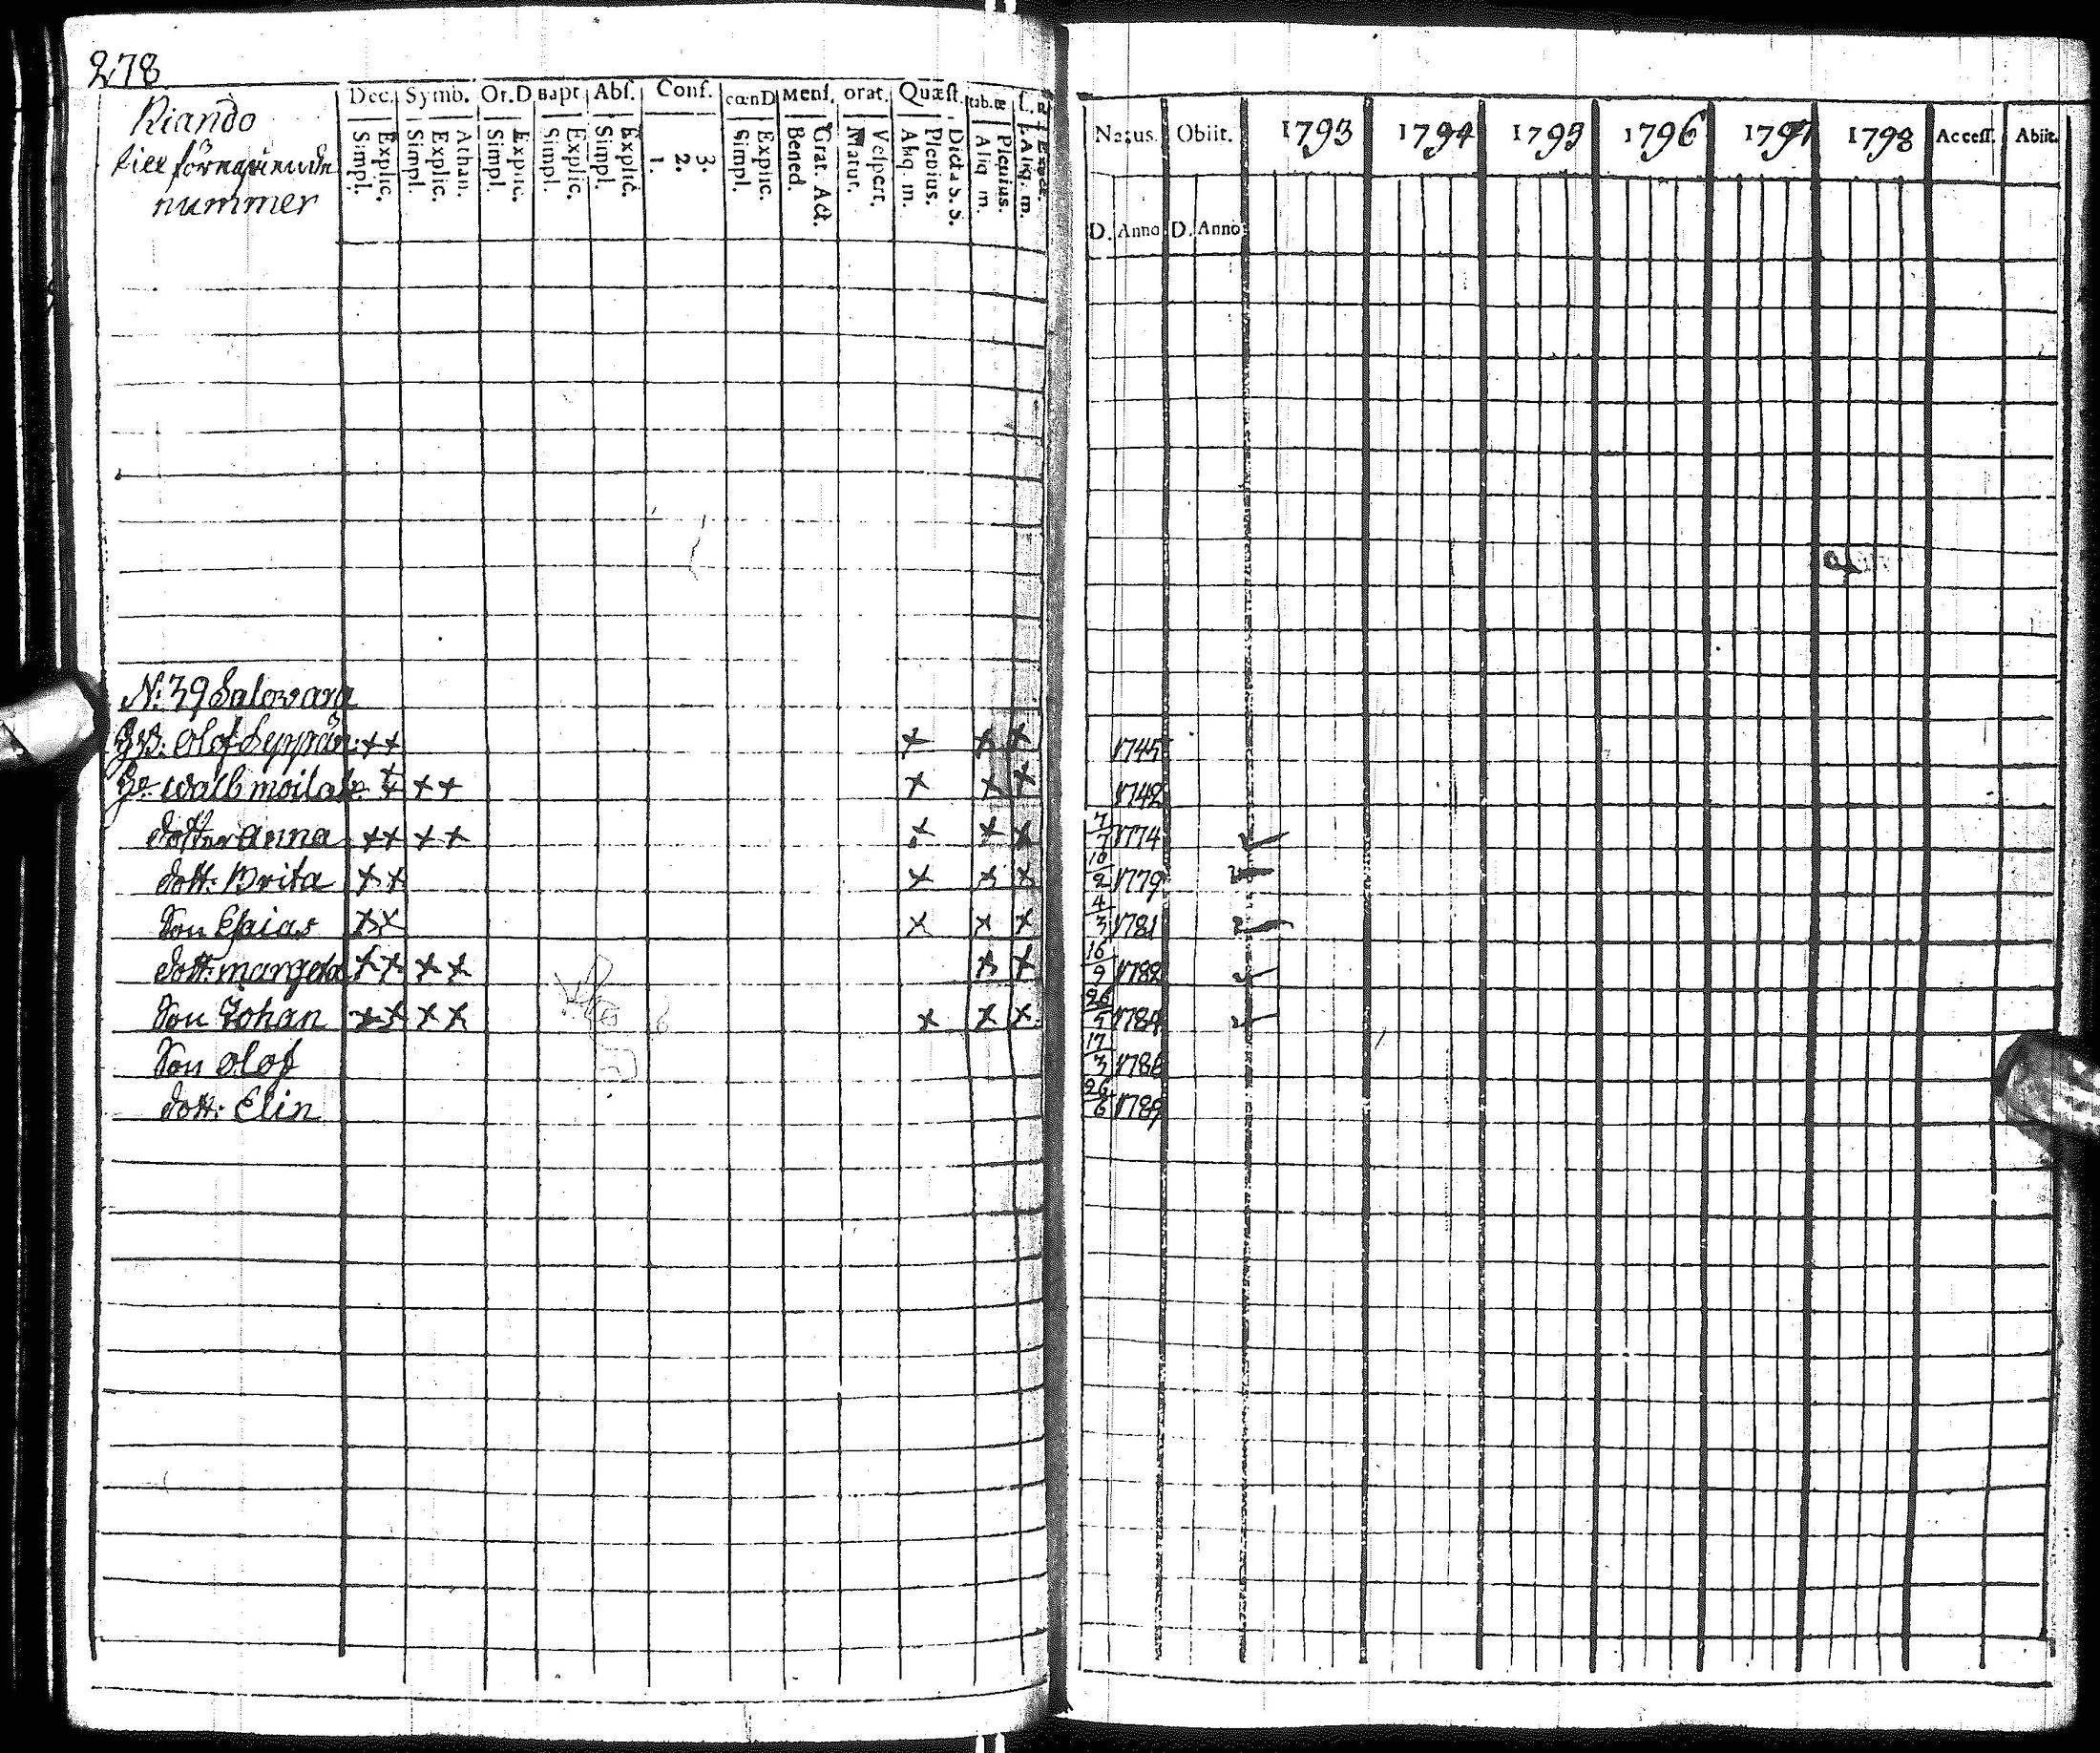 278
Riando
till föregående
nummer
Dec. Symb. Or.D Bapt. Abs. Conf. cœnD Mens. orat. Quæst. tab.œ
Simpl. Explic. Simpl. Explic. Athan. Simpl. Explic. Simpl. Explic. Simpl. Explic. 1. 2. 3. Simpl. Explic. Bened. Grat. Act. Matut. Vespert. Aliq. m. Plenius. Dicta S. S. Aliq. m. Plenius. Aliq. m.
Natus. Obiit. 1793 1794 1795 1796 1797 1798 Access. Abiit.
D. Anno D. Anno
N: 39 Salovara
Olof Seppän: x x x x x 1745
walb moilan x x x x x x x 1742
dotter anna x x x x x x x 7/7 1774
dott: Brita x x x x x 10/2 1779
Son Esaias x x x x x 4/3 1781
dott: margeta x x x x x x 16/9 1782
Son Johan x x x x x x x 26/5 1784
Son olof 17/3 1786
dott: Elin 26/6 1789